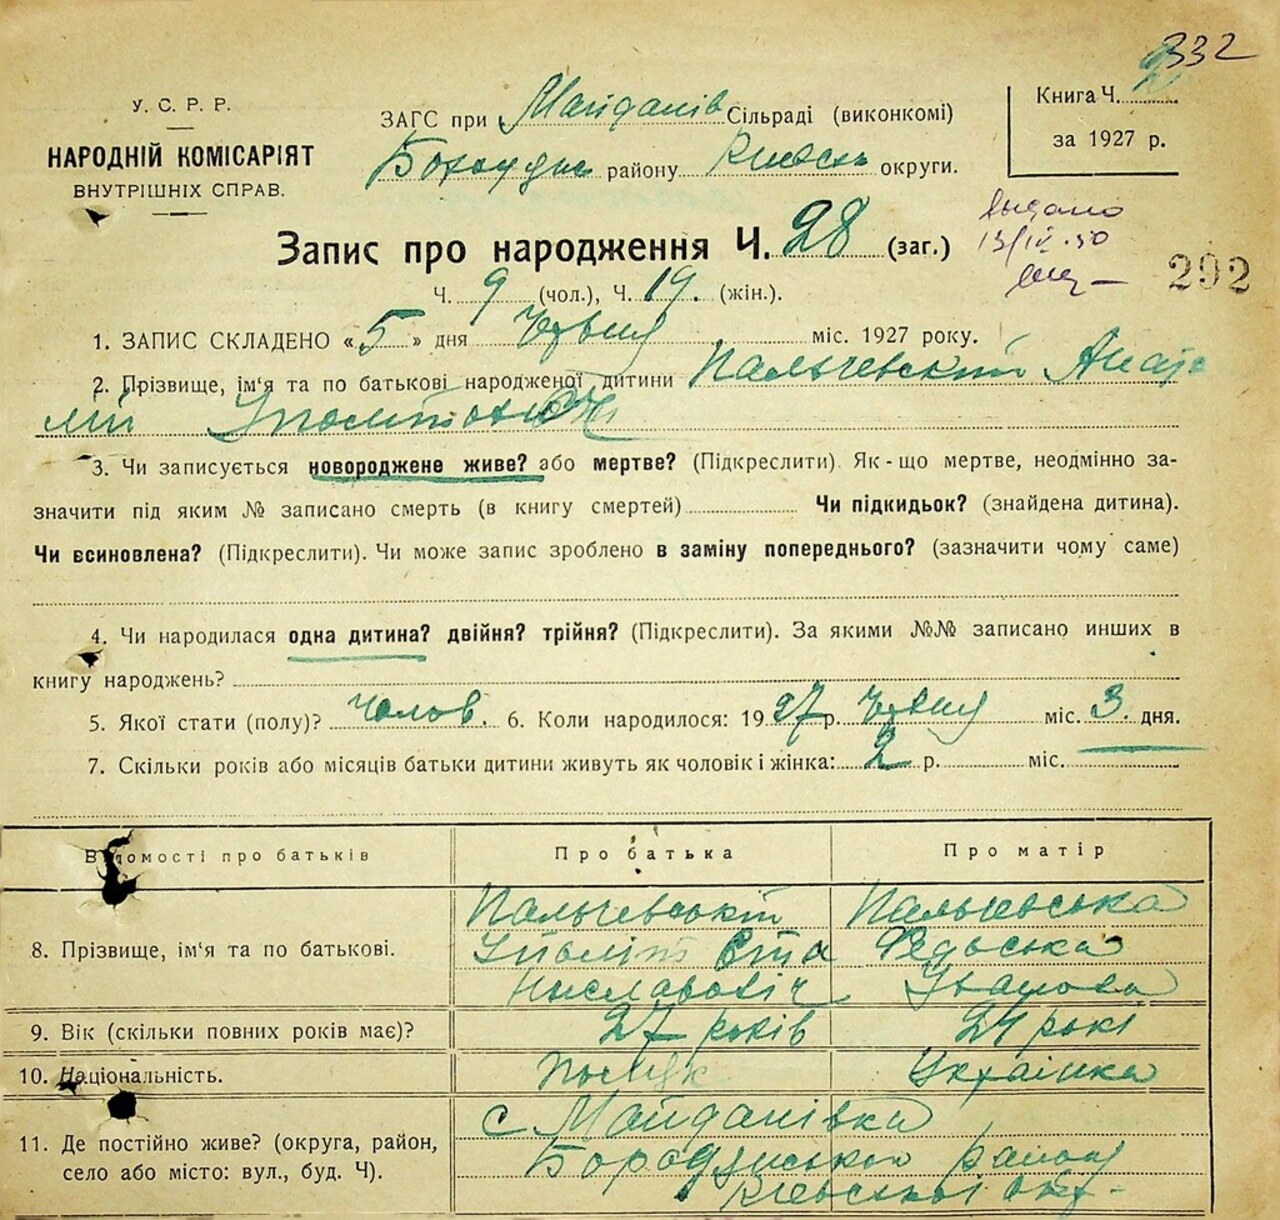 332
У. С. Р. Р.
НАРОДНІЙ КОМІСАРІЯТ
ВНУТРІШНІХ СПРАВ.
ЗАГС при Майданів Сільраді (виконкомі)
району округи.
Книга Ч.
за 1927 р.
Запис про народження Ч. 28 (заг.)
Ч. 9 (чол.), Ч. 19. (жін.).
видано
13/IV.50
202
1. ЗАПИС СКЛАДЕНО «5» дня міс. 1927 року.
2. Прізвище, ім'я та по батькові народженої дитини Пальчевский Анато
лій
3. Чи записується новороджене живе? або мертве? (Підкреслити). Як-що мертве, неодмінно за-
значити під яким № записано смерть (в книгу смертей) Чи підкидьок? (знайдена дитина).
Чи всиновлена? (Підкреслити). Чи може запис зроблено в заміну попереднього? (зазначити чому саме)
4. Чи народилася одна дитина? двійня? трійня? (Підкреслити). За якими №№ записано инших в
книгу народжень?
5. Якої стати (полу)? Чолов. 6. Коли народилося: 1927 р. міс. 3. дня.
7. Скільки років або місяців батьки дитини живуть як чоловік і жінка: 2 р. міс.
Відомості про батьків Про батька Про матір
8. Прізвище, ім'я та по батькові.
Пальчевський Пальчевська
Іполіт Ста Федоська
ниславовіч Іванова
9. Вік (скільки повних років має)? 27 років 24 рокі
10. Національність. Поляк Українка
11. Де постійно живе? (округа, район,
село або місто: вул., буд. Ч).
с Майданівка
Бородянського району
Київської окр.